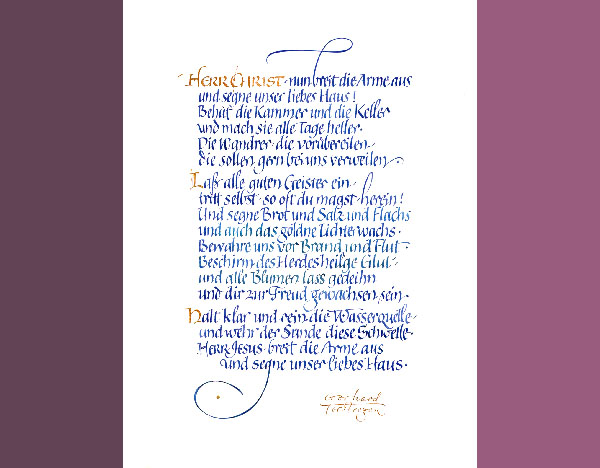 HERR CHRIST · nun breit die Arme aus
und segne unser liebes Haus!
Behüt die Kammer und die Keller
und mach sie alle Tage heller.
Die Wandrer, die vorübereilen,
die sollen gern bei uns verweilen.
Laß alle guten Geister ein,
tritt selbst, so oft du magst herein!
Und segne Brot und Salz und Flachs
und auch das goldne Lichterwachs.
Bewahre uns vor Brand und Flut.
Beschirm des Herdes heilge Glut.
und alle Blumen lass gedeihn
und dir zur Freud gewachsen sein.
Halt klar und rein die Wasserquelle
und wehr der Sünde diese Schwelle.
HERR JESUS · breit die Arme aus
und segne unser liebes Haus.
Gerhard
Tersteegen